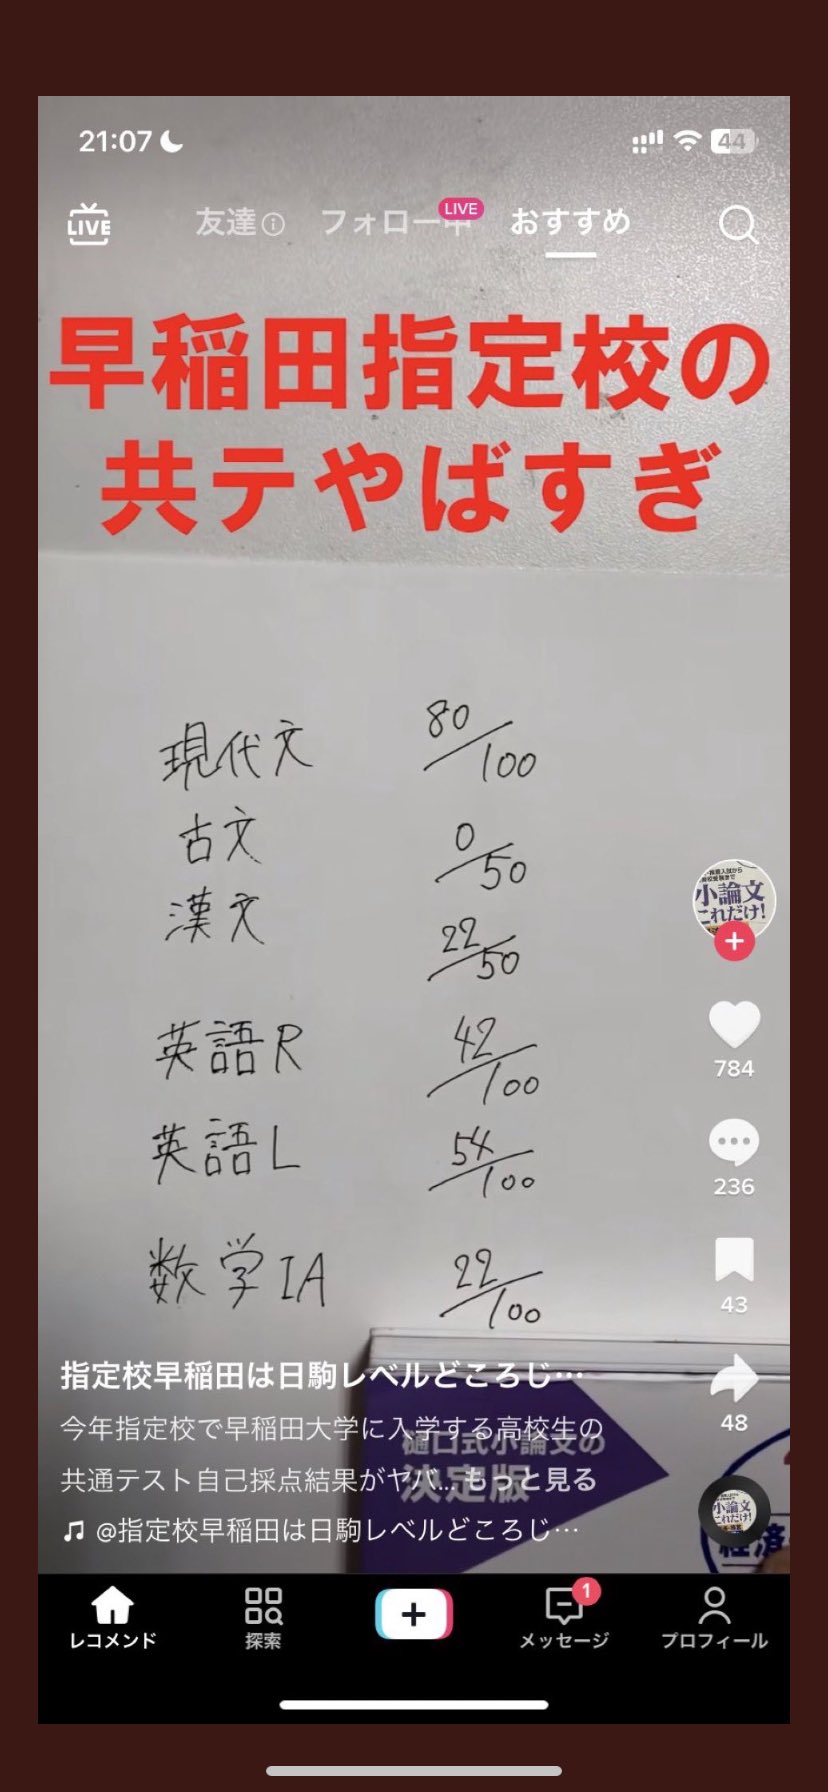 21:07
44
LIVE
友達
フォロー中
LIVE
おすすめ
早稲田指定校の
共テやばすぎ
現代文 80/100
古文 0/50
漢文 22/50
英語R 42/100
英語L 54/100
数学IA 22/100
小論文
これだけ!
784
236
43
48
指定校早稲田は日駒レベルどころじ…
今年指定校で早稲田大学に入学する高校生の
共通テスト自己採点結果がヤバ... もっと見る
@指定校早稲田は日駒レベルどころじ…
樋口式小論文の
決定版
小論文
これだけ!
経済
レコメンド
探索
1
メッセージ
プロフィール